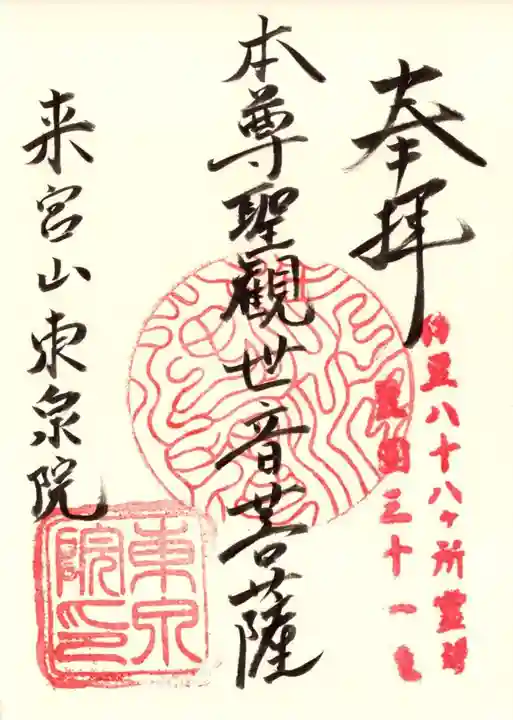 奉拝
伊豆八十八ヶ所霊場
霊国三十一
本尊聖觀世音菩薩
来宮山東泉院
東泉院印